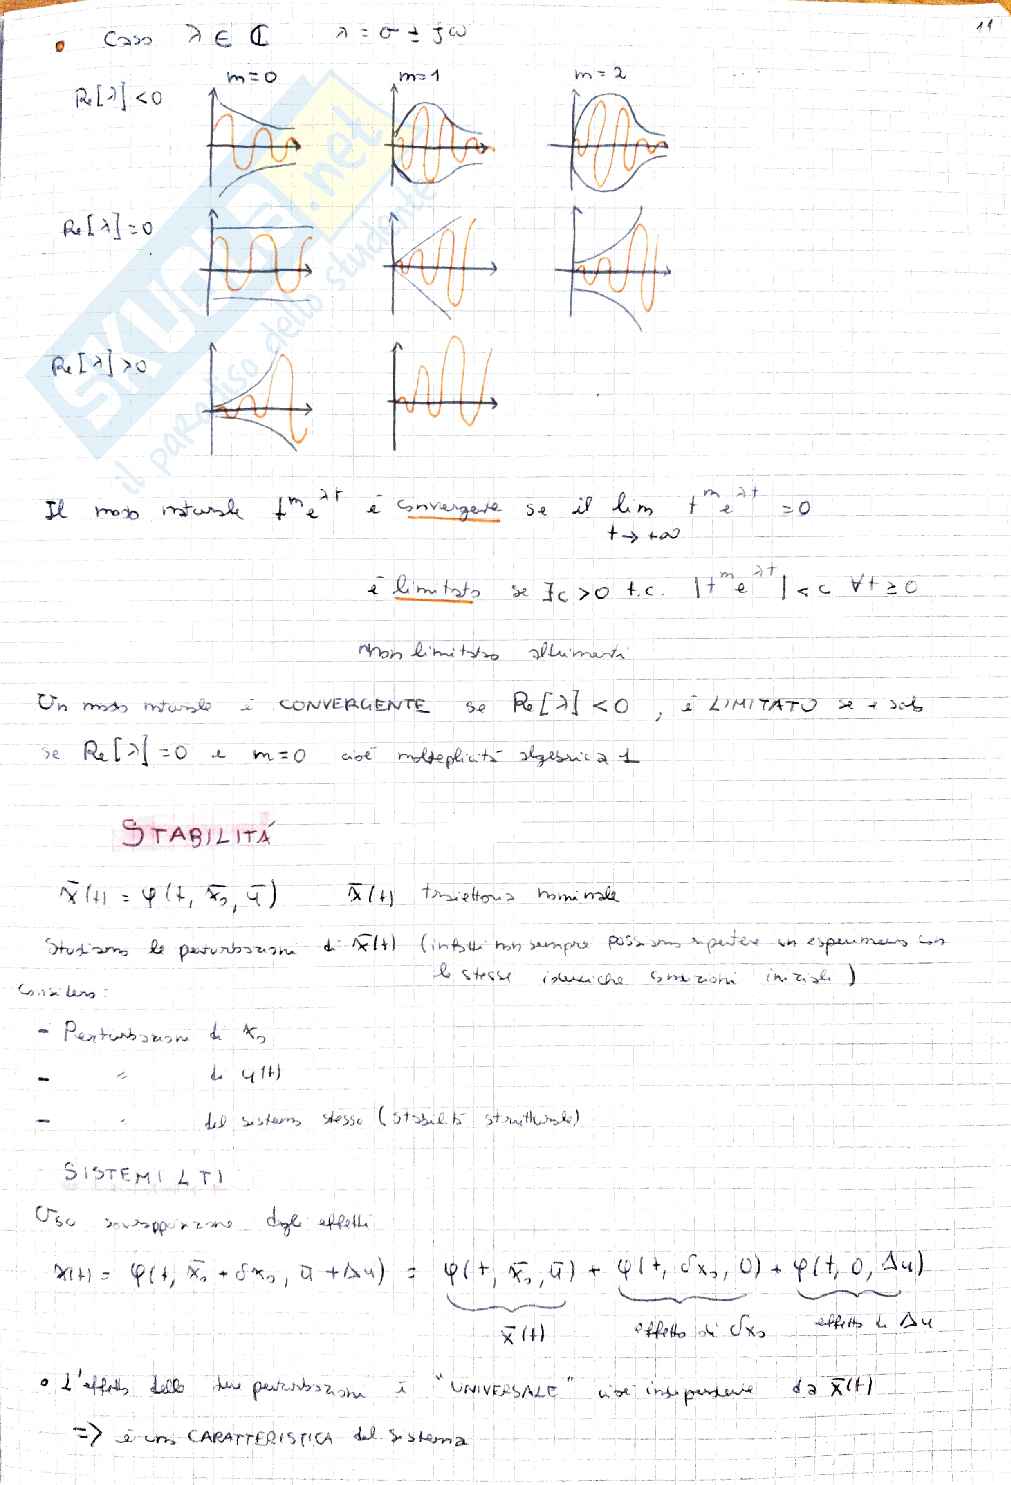 11
• Caso λ ∈ ℂ λ = σ ± jω
m=0 m=1 m=2 ...
Re[λ]<0
Re[λ]=0
Re[λ]>0
SKUOLA.net
il paradiso dello studente
Il modo naturale t^m e^{λt} è convergente se il lim_{t→+∞} t^m e^{λt} = 0
è limitato se ∃c>0 t.c. |t^m e^{λt}| < c ∀t ≥ 0
non limitato altrimenti
Un modo naturale è CONVERGENTE se Re[λ]<0, è LIMITATO se e solo
se Re[λ]=0 e m=0 cioè molteplicità algebrica 1
STABILITÁ
x̄(t) = φ(t, x̄₀, ū) x̄(t) traiettoria nominale
Studiamo le perturbazioni di x̄(t) (infatti non sempre possiamo ripetere un esperimento con
le stesse identiche condizioni iniziali)
Considero:
- Perturbazioni di x₀
- " di u(t)
- " del sistema stesso (stabilità strutturale)
SISTEMI LTI
Uso sovrapposizione degli effetti
x(t) = φ(t, x̄₀ + δx₀, ū + Δu) = φ(t, x̄₀, ū) + φ(t, δx₀, 0) + φ(t, 0, Δu)
x̄(t) effetto di δx₀ effetto di Δu
• L'effetto delle due perturbazioni è "UNIVERSALE" cioè indipendente da x̄(t)
=> è una CARATTERISTICA del sistema